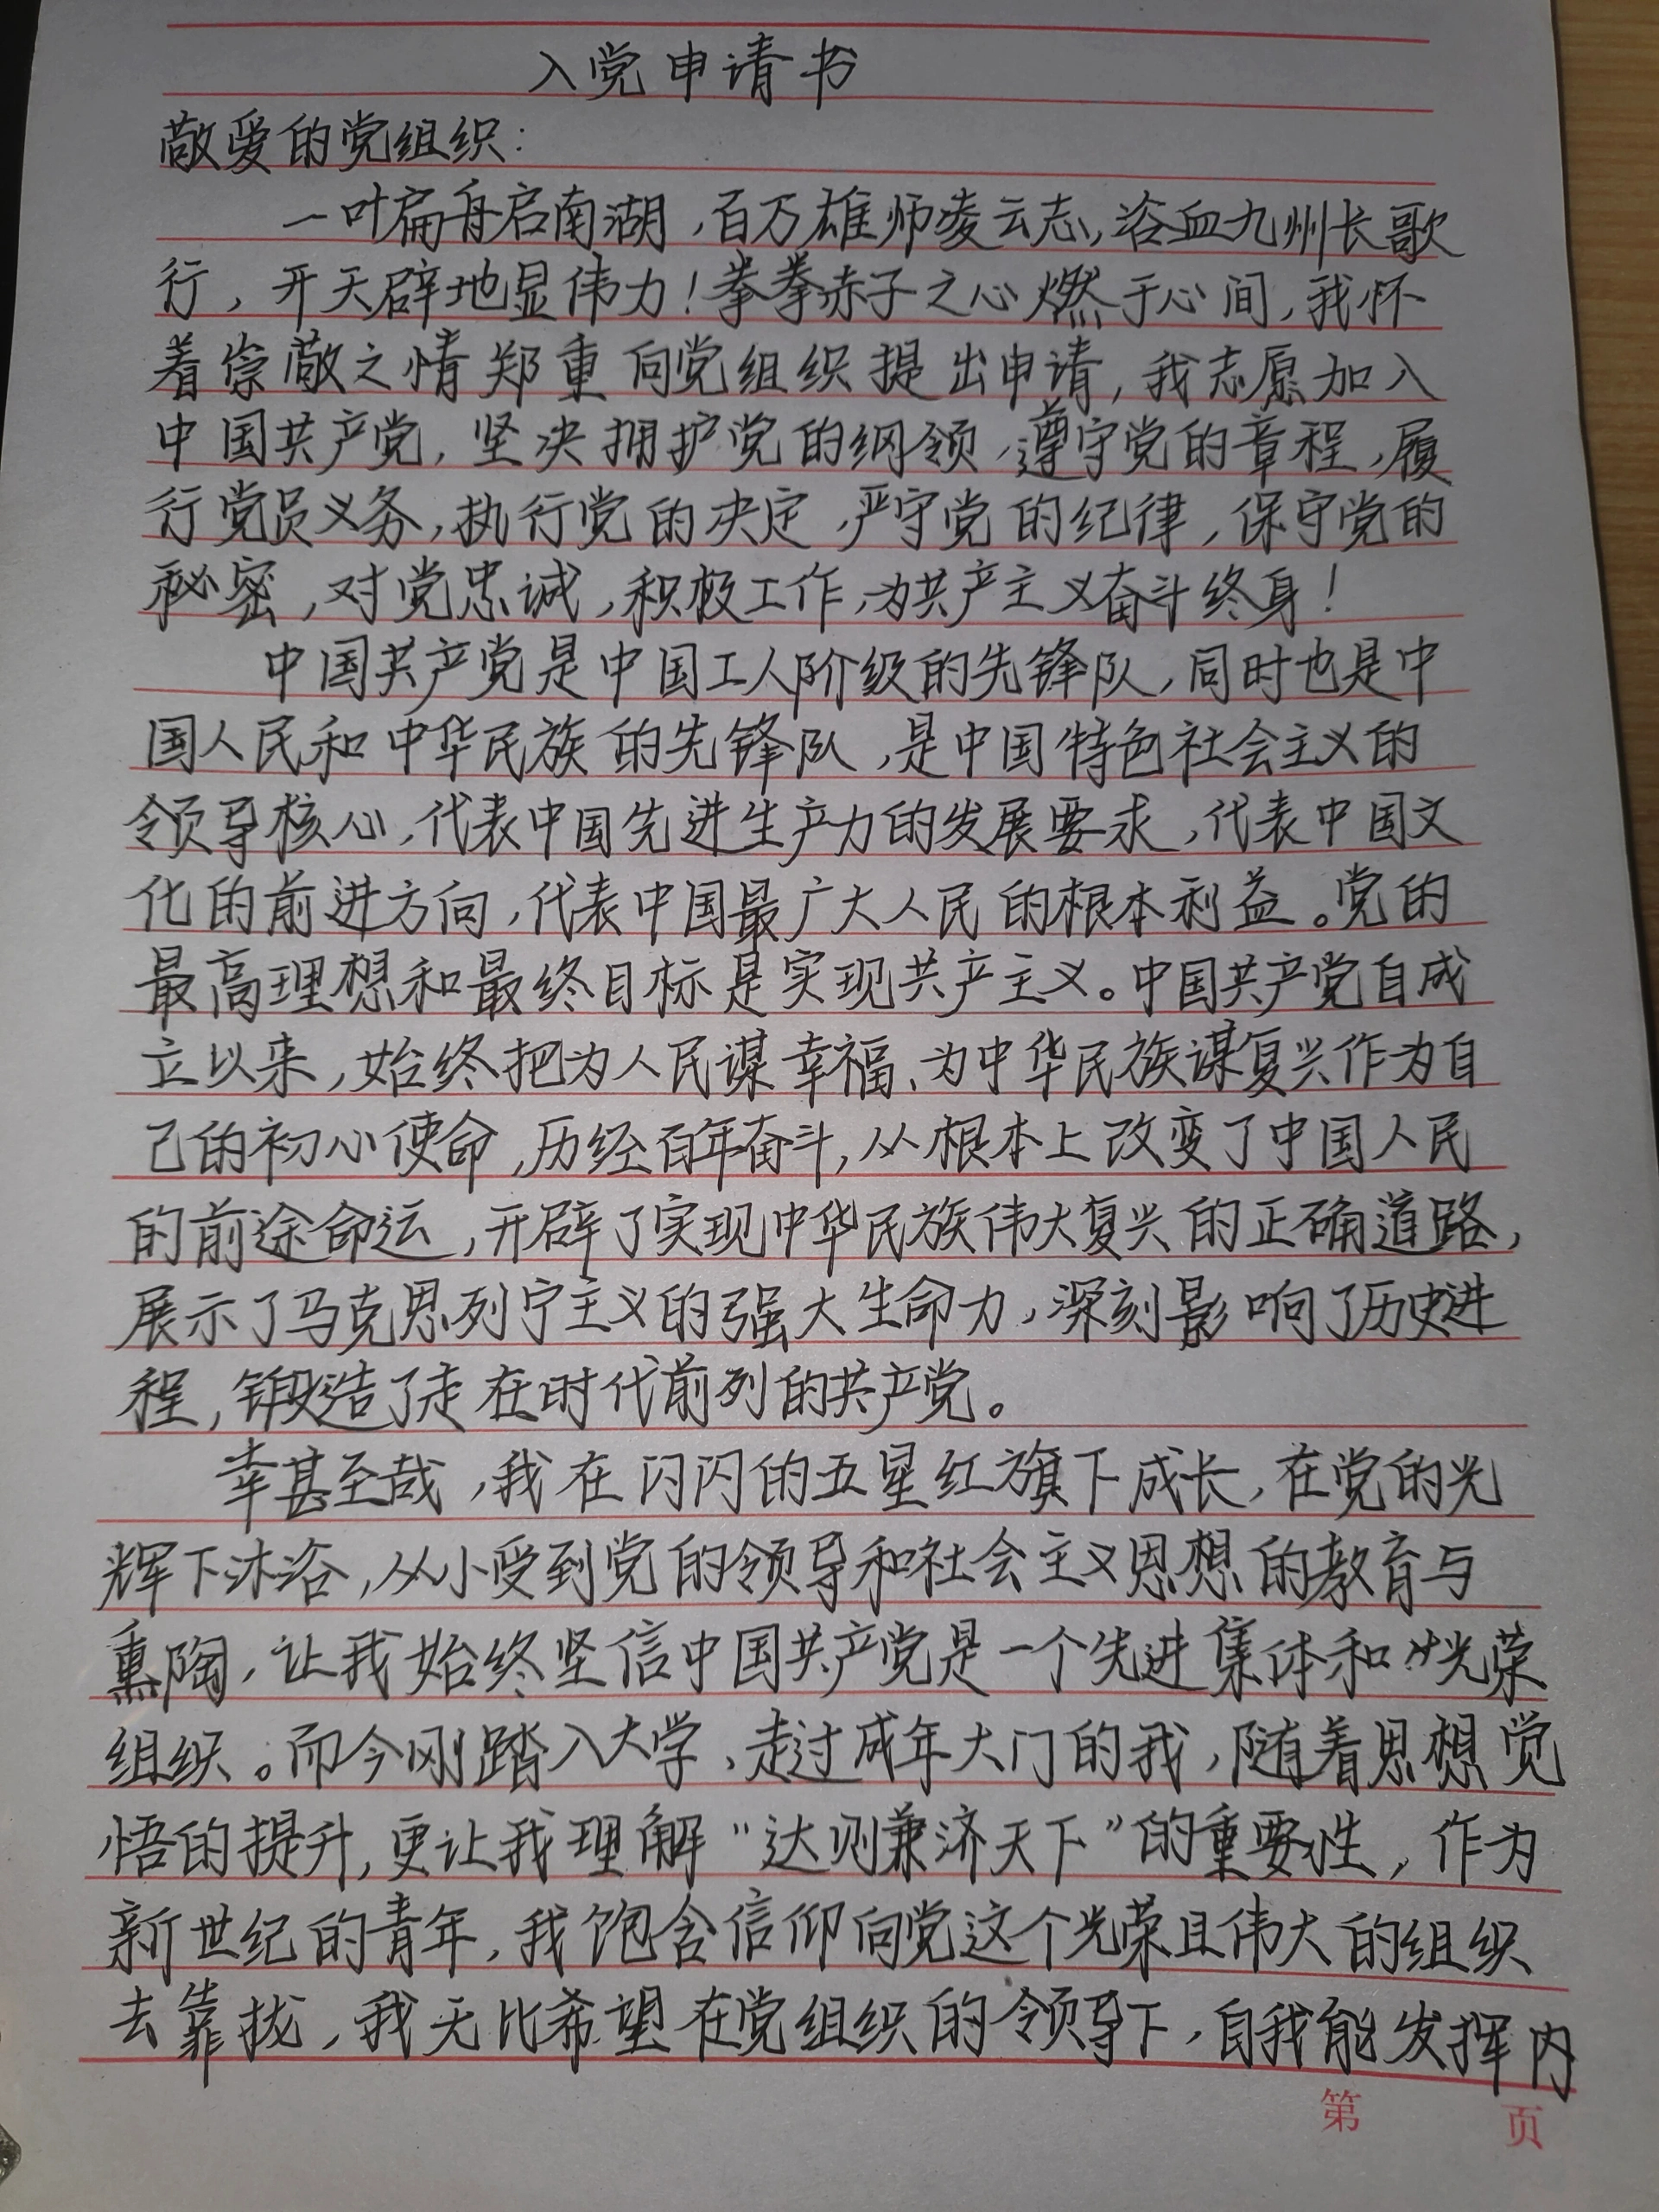 入党申请书
敬爱的党组织：
一叶扁舟启南湖，百万雄师凌云志，浴血九州长歌
行，开天辟地显伟力！拳拳赤子之心燃于心间，我怀
着崇敬之情郑重向党组织提出申请，我志愿加入
中国共产党，坚决拥护党的纲领，遵守党的章程，履
行党员义务，执行党的决定，严守党的纪律，保守党的
秘密，对党忠诚，积极工作，为共产主义奋斗终身！
中国共产党是中国工人阶级的先锋队，同时也是中
国人民和中华民族的先锋队，是中国特色社会主义的
领导核心，代表中国先进生产力的发展要求，代表中国文
化的前进方向，代表中国最广大人民的根本利益。党的
最高理想和最终目标是实现共产主义。中国共产党自成
立以来，始终把为人民谋幸福、为中华民族谋复兴作为自
己的初心使命，历经百年奋斗，从根本上改变了中国人民
的前途命运，开辟了实现中华民族伟大复兴的正确道路，
展示了马克思列宁主义的强大生命力，深刻影响了历史进
程，锻造了走在时代前列的共产党。
幸甚至哉，我在闪闪的五星红旗下成长，在党的光
辉下沐浴，从小受到党的领导和社会主义思想的教育与
熏陶，让我始终坚信中国共产党是一个先进集体和光荣
组织。而今刚踏入大学、走过成年大门的我，随着思想觉
悟的提升，更让我理解“达则兼济天下”的重要性，作为
新世纪的青年，我饱含信仰向党这个光荣且伟大的组织
去靠拢，我无比希望在党组织的领导下，自我能发挥内
第 页